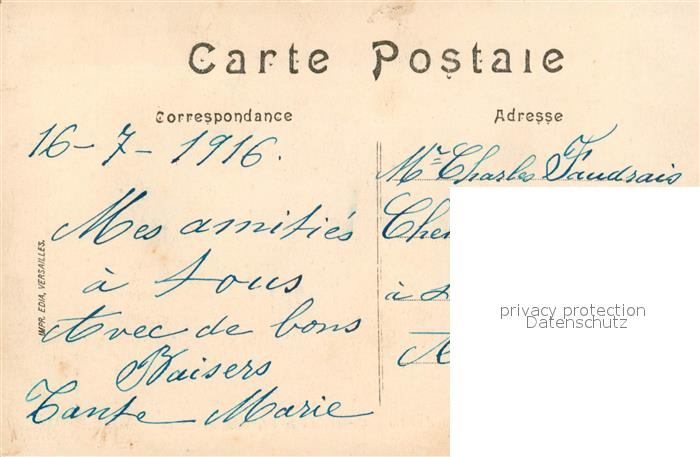 Carte Postale
Correspondance
Adresse
16-7-1916.
Mes amitiés
à tous
Avec de bons
Baisers
Tante Marie
Mr Charles
à
IMPR. EDIA, VERSAILLES.
privacy protection
Datenschutz